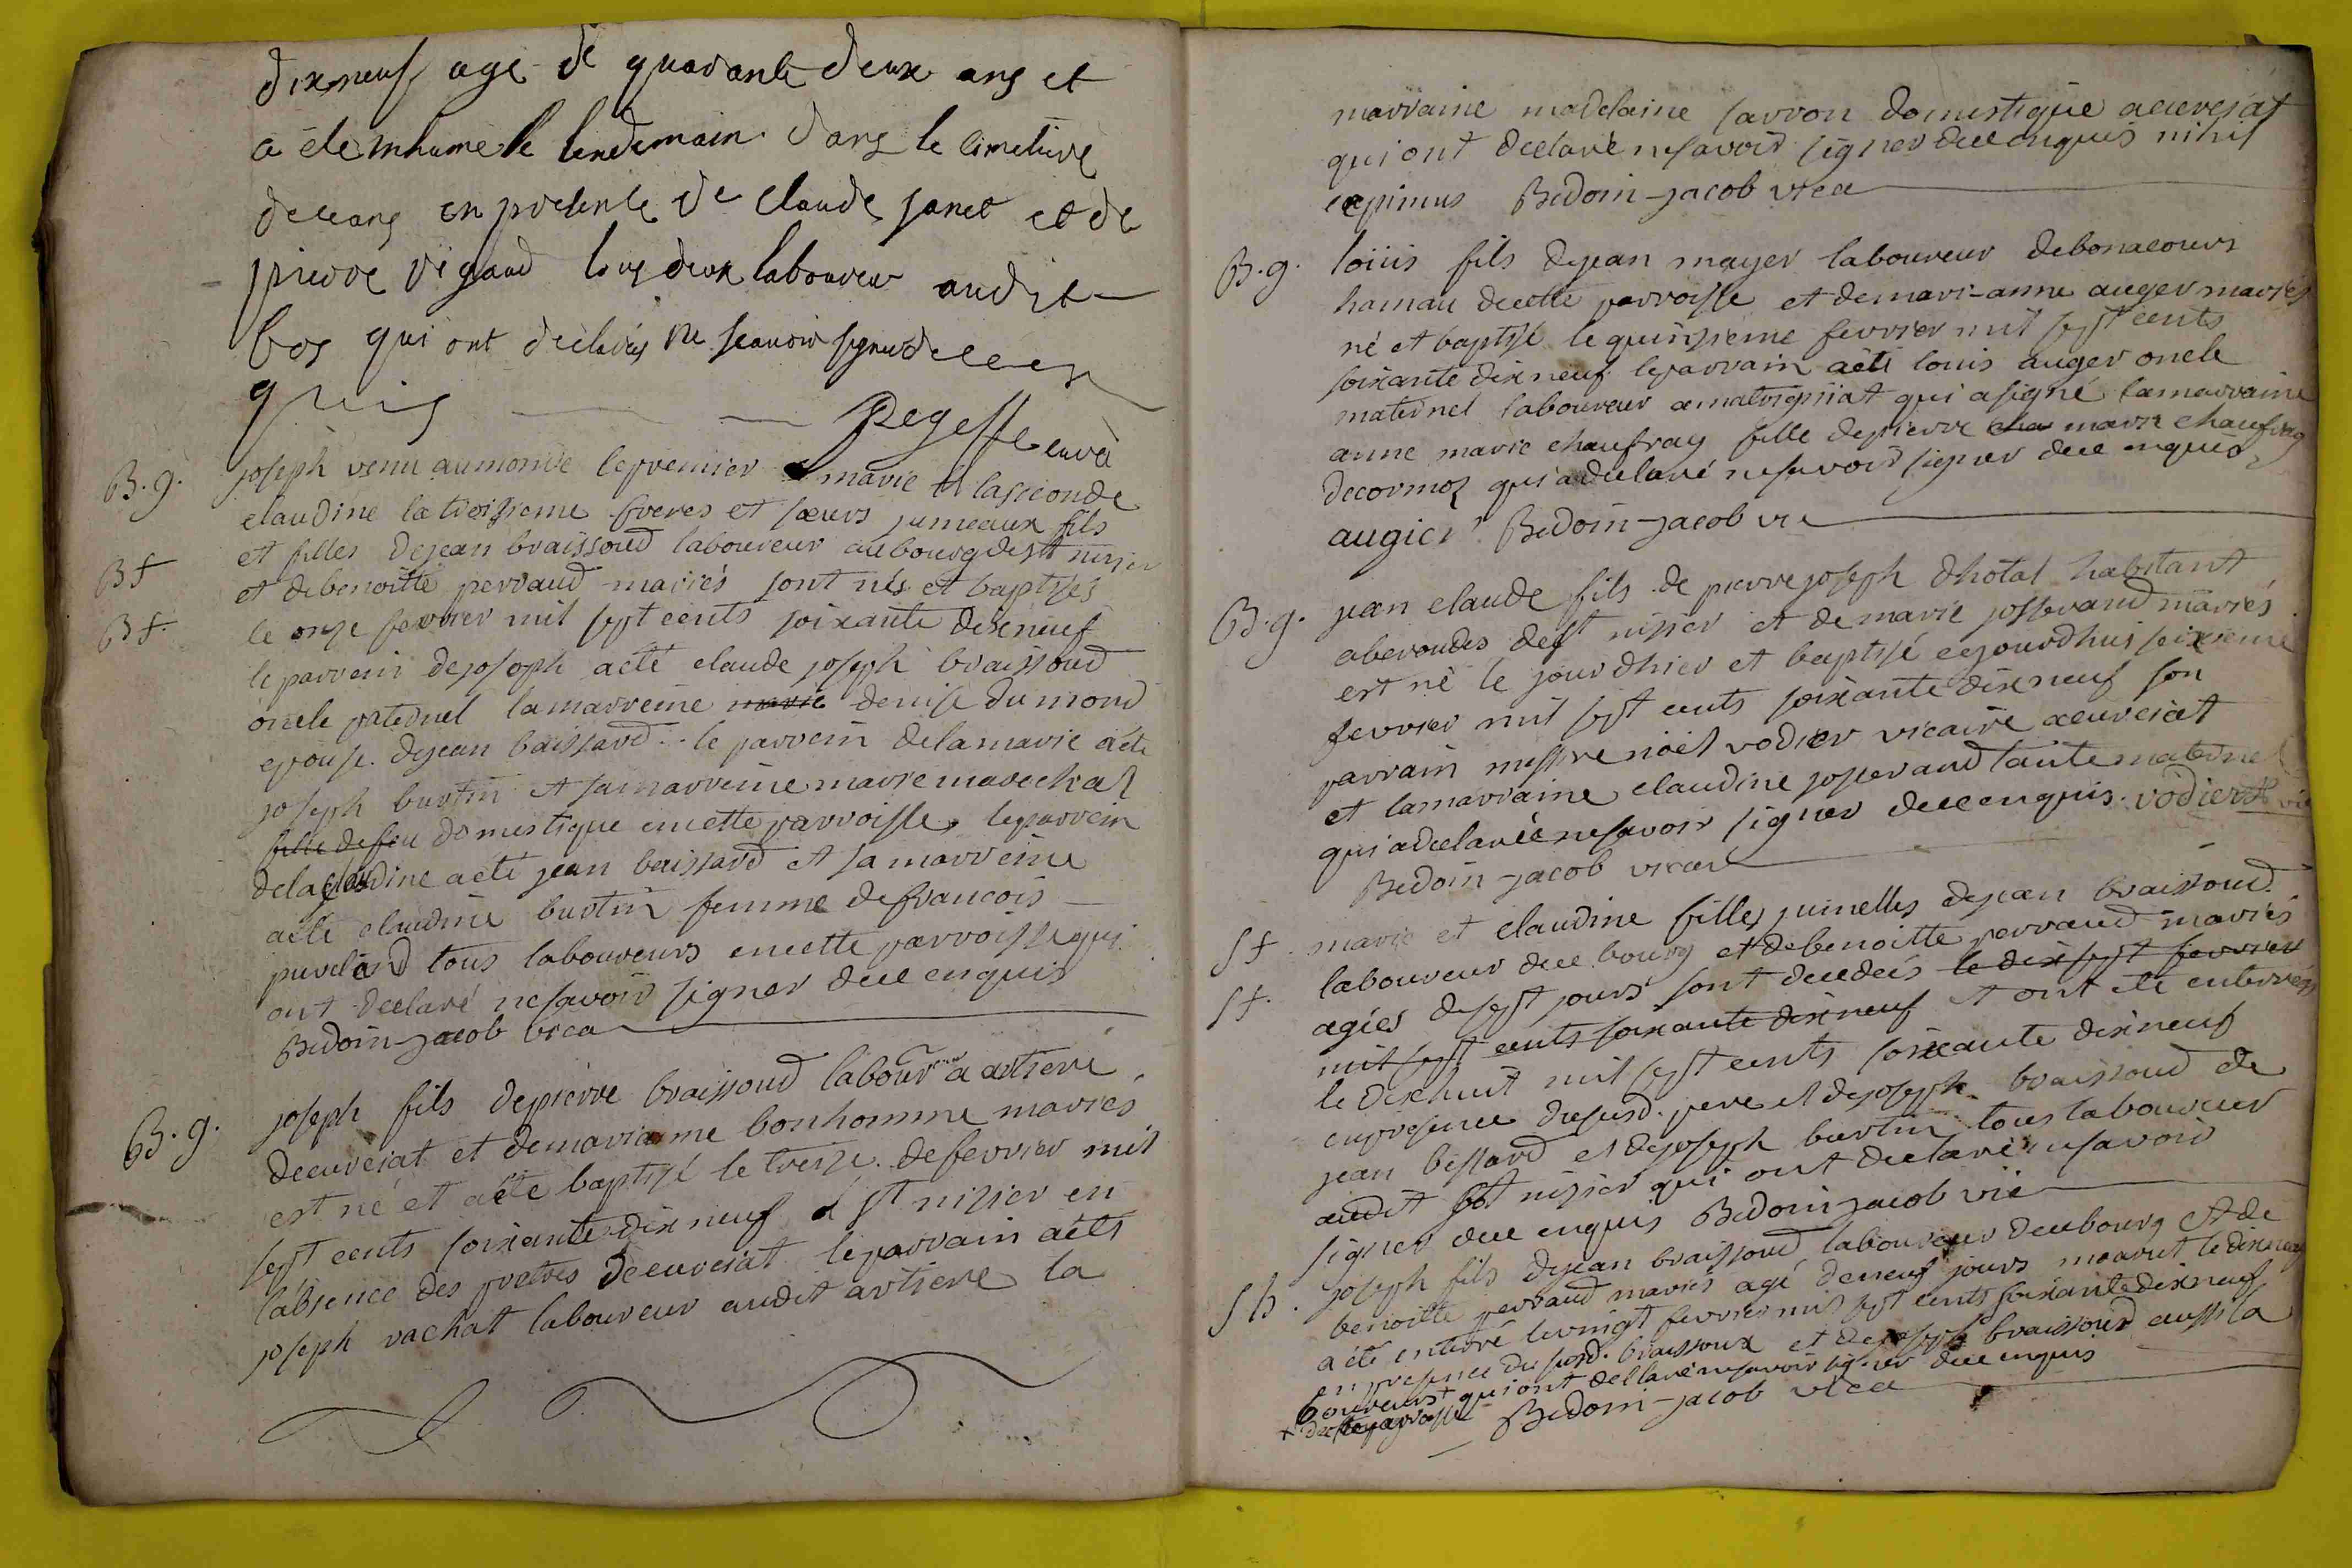 dixneuf agé de quarante deux ans et
a été inhumé le lendemain dans le cimetiere
deceans en presence de claude janet et de
pierre rigaud tous deux laboureur audit
bos qui ont déclarés ne scauoir signer de ce en
quis Regeffe curé
B.g. joseph venu aumonde lepremier marie et laseconde
claudine la troisieme freres et sœurs jumeaux fils
et filles dejean braissoud laboureur aubourg de st nizier
Bf et debenoitte perraud mariés sont nés et baptisés
Bf. le onze fevrier mil sept cents soixante dixneuf
le parrein dejosoph aété claude joseph braissoud
oncle paternel lamarreine marie denise du mond
epouse dejean baissard. le parrein delamarie aété
joseph burtin et samarreine marie marechal
fille defeu domestique encette parroisse, leparrein
delaclaudine aété jean baissard et sa marreine
aété claudine burtin femme defrancois
tous laboureurs encette parroisse qui
ont declaré nesavoir signer dece enquis
Bidoin-jacob vica
B.g. joseph fils depierre braissoud labour eur a artiere
decurciat et demarianne bonhomme mariés
est né et aété baptisé le treize. defevrier mil
sept cents soixante dix neuf a st nizier en
l'absence des pretres decurciat leparrain aété
joseph vachat laboureur audit artiere la
marraine madelaine sarron domestique acurciat
qui ont declaré nesavoir signer dece enquis nihil
cepimus Bidoin-jacob vica
B.g. loüis fils dejean mayer laboureur debonacours
hamau decette parroisse et demari-anne auger mariés
né et baptisé le quinzieme fevrier mil sept cents
soixante dix neuf leparrain aété louis auger oncle
maternel laboureur amatrigniat qui asigné lamarraine
anne marie chaufray fille depierre cha marie chaufray
decormoz qui adeclaré nesavoir signer dece enquis
augier Bidoin-jacob vic
B.g. jean claude fils de pierre joseph dhotal habitant
aberoudes dest nizier et de marie josserand mariés
est né le jourdhier et baptisé cejourdhui seizieme
fevrier mil sept cents soixante dix neuf son
parrain messire noël vodier vicaire acurciat
et lamarraine claudine josserand tante maternel
qui adeclarée nesavoir signer dece enquis. vodier vic
Bidoin-jacob vicar
Sf. marie et claudine filles jumelles dejean braissoud
laboureur dece bourg et debenoitte perraud mariés
Sf. agées desept jours sont decedées le dix sept fevrier
mil sept cents soixante dix neuf et ont été enterrées
le dixhuit mil sept cents soixante dixneuf
enpresence dususd. pere et dejoseph braissoud de
jean bessard et dejoseph burtin tous laboureur
audit st nizier qui ont declaré nesavoir
signer dece enquis Bidoin jacob vic
Sh. joseph fils dejean braissoud laboureur dece bourg et de
benoitte perraud mariés agé deneuf jours mourut le dixneuf
a été enterré levingt fevrier mil sept cents soixante dix neuf
en presence du susd. braissoux et dejoseph braissoud aussi la
boureurs+ qui ont declaré nesavoir signer dece enquis
+ dece parroisse Bidoin-jacob vica